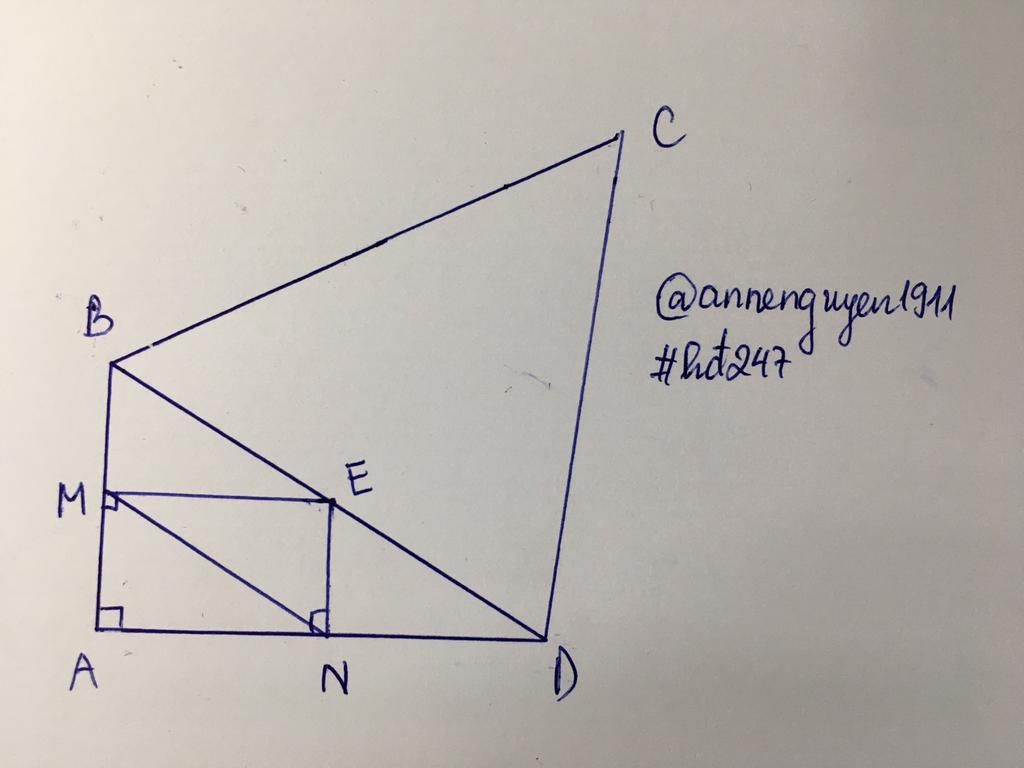 C
B
@annenguyen1911
#hđ247
M
E
A
N
D